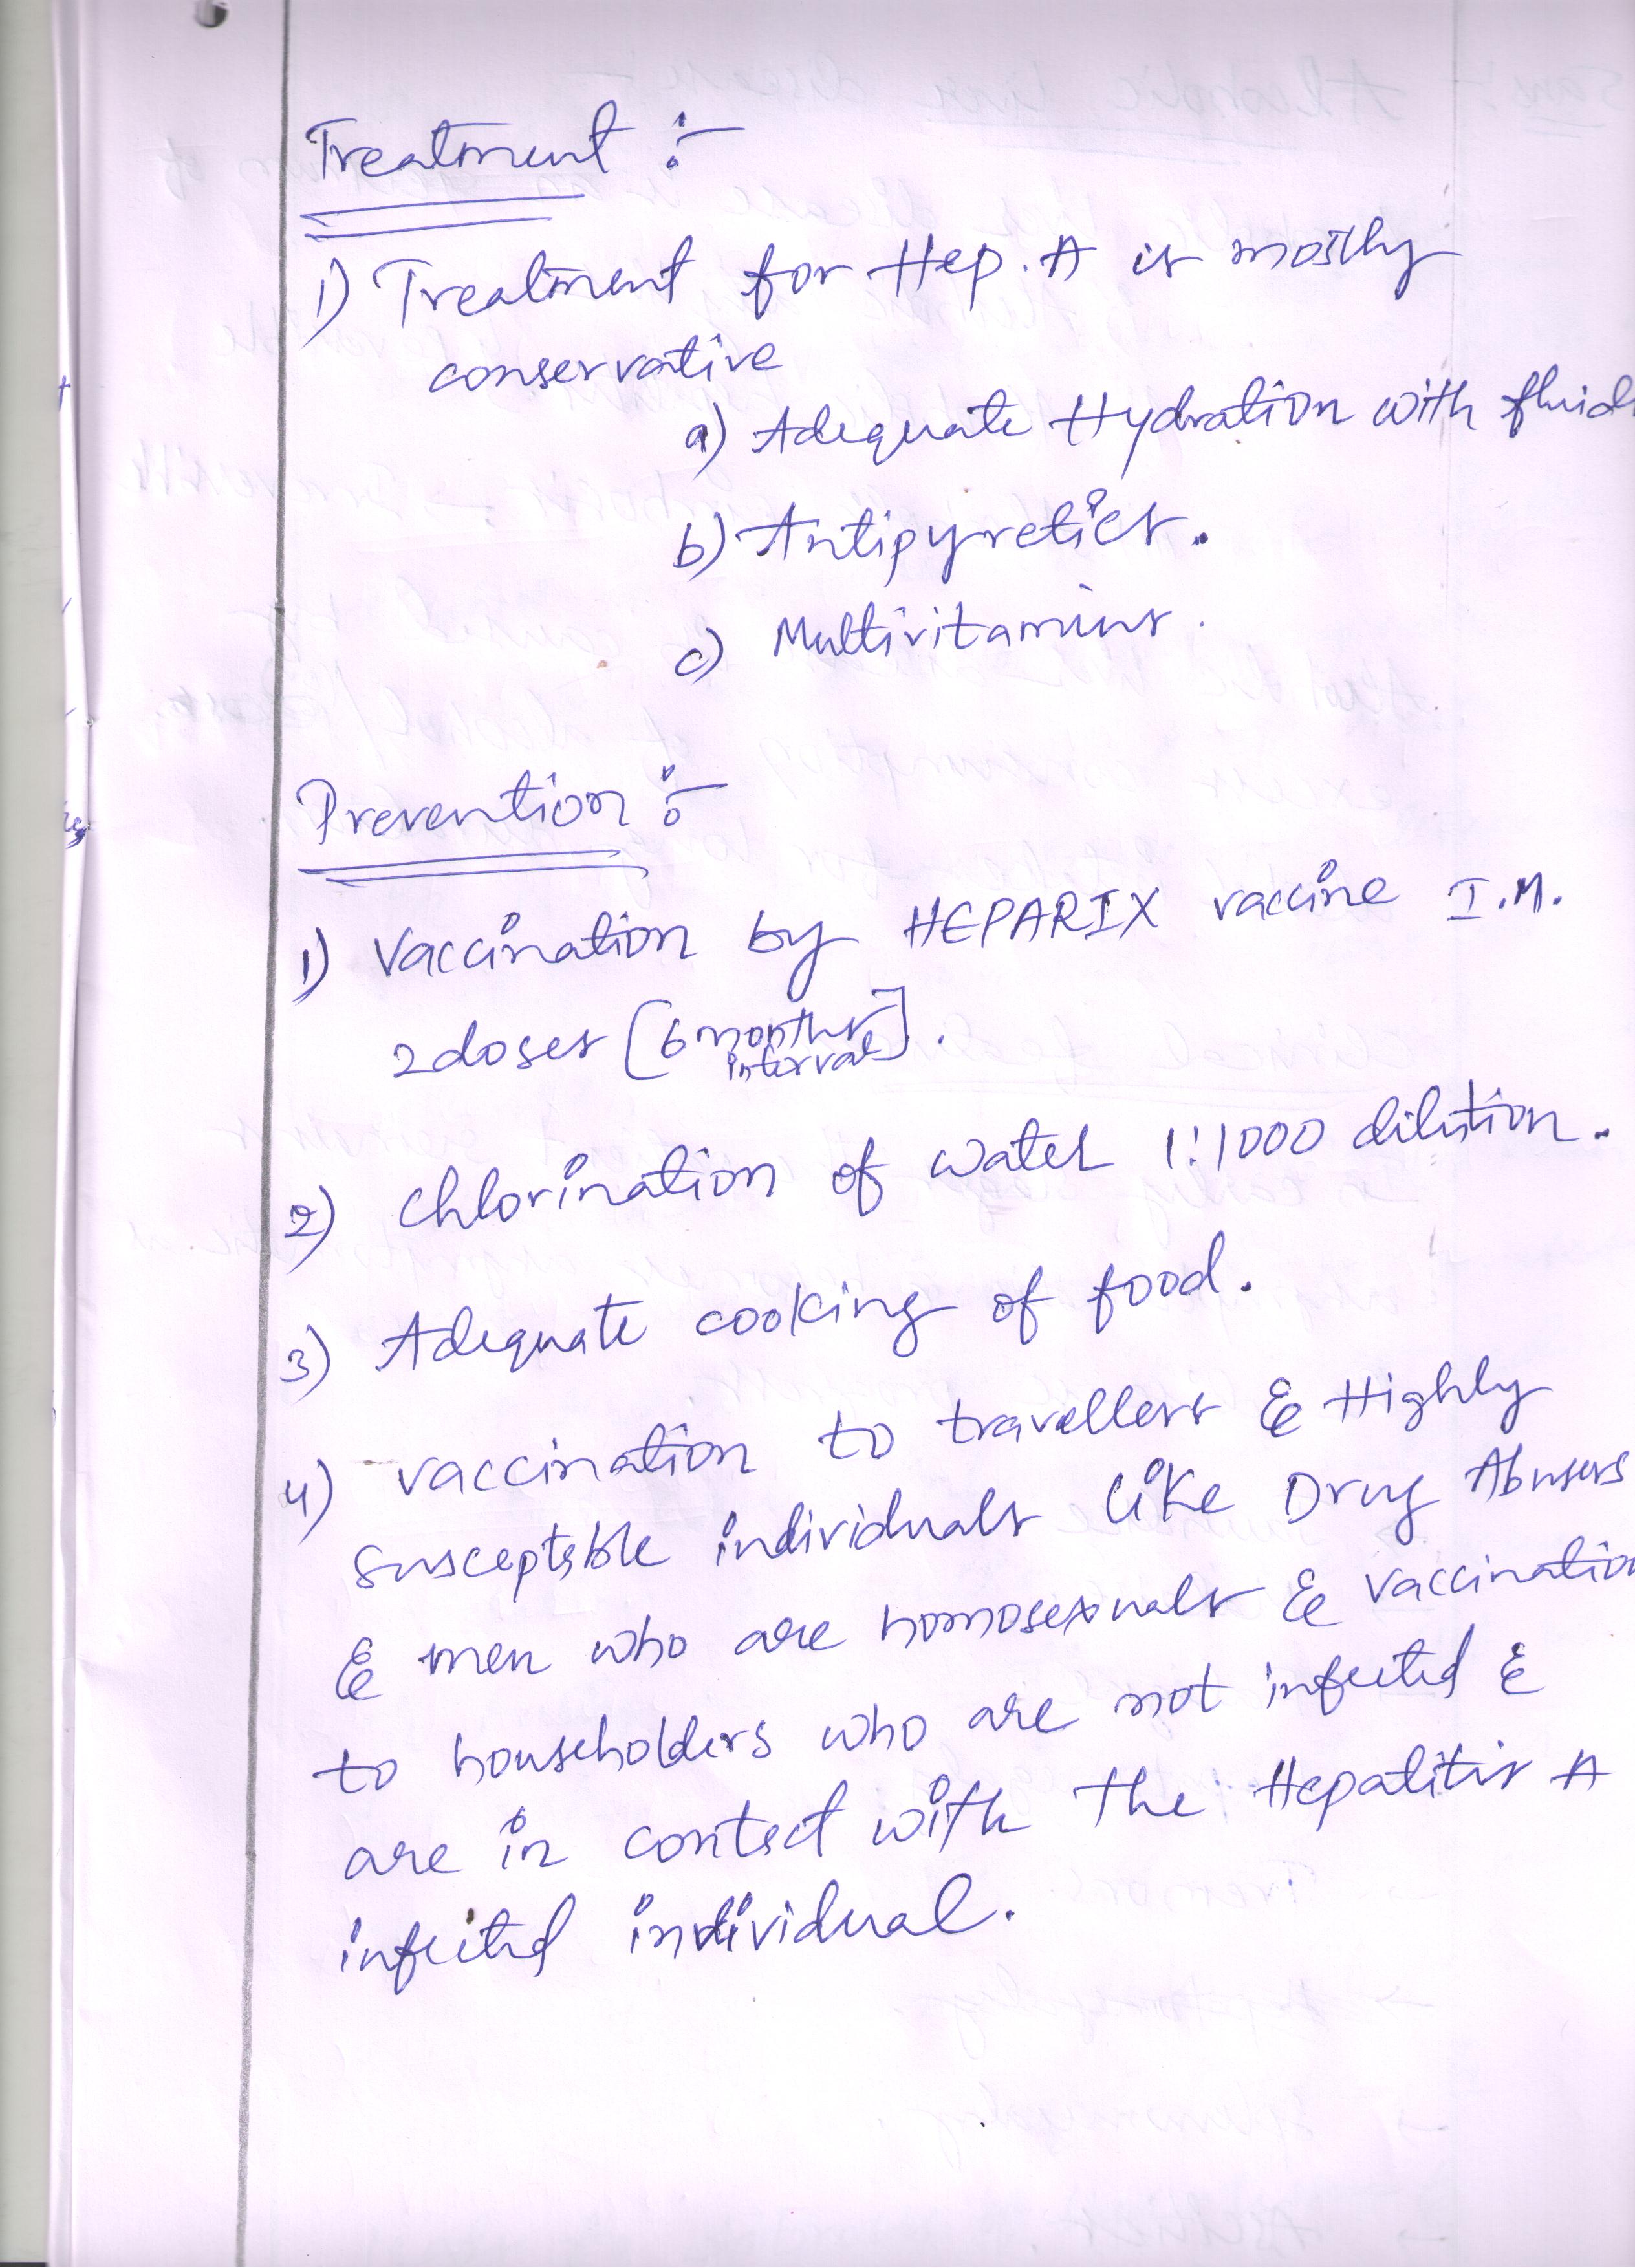 Treatment :-
1) Treatment for Hep. A is mostly
conservative
a) Adequate Hydration with fluids
b) Antipyretics.
c) Multivitamins.
Prevention :-
1) Vaccination by HEPARIX vaccine I.M.
2 doses [6 months interval].
2) Chlorination of water 1:1000 dilution.
3) Adequate cooking of food.
4) vaccination to travellers & Highly
susceptible individuals like Drug Abusers
& men who are homosexuals & vaccination
to householders who are not infected &
are in contact with the Hepatitis A
infected individual.